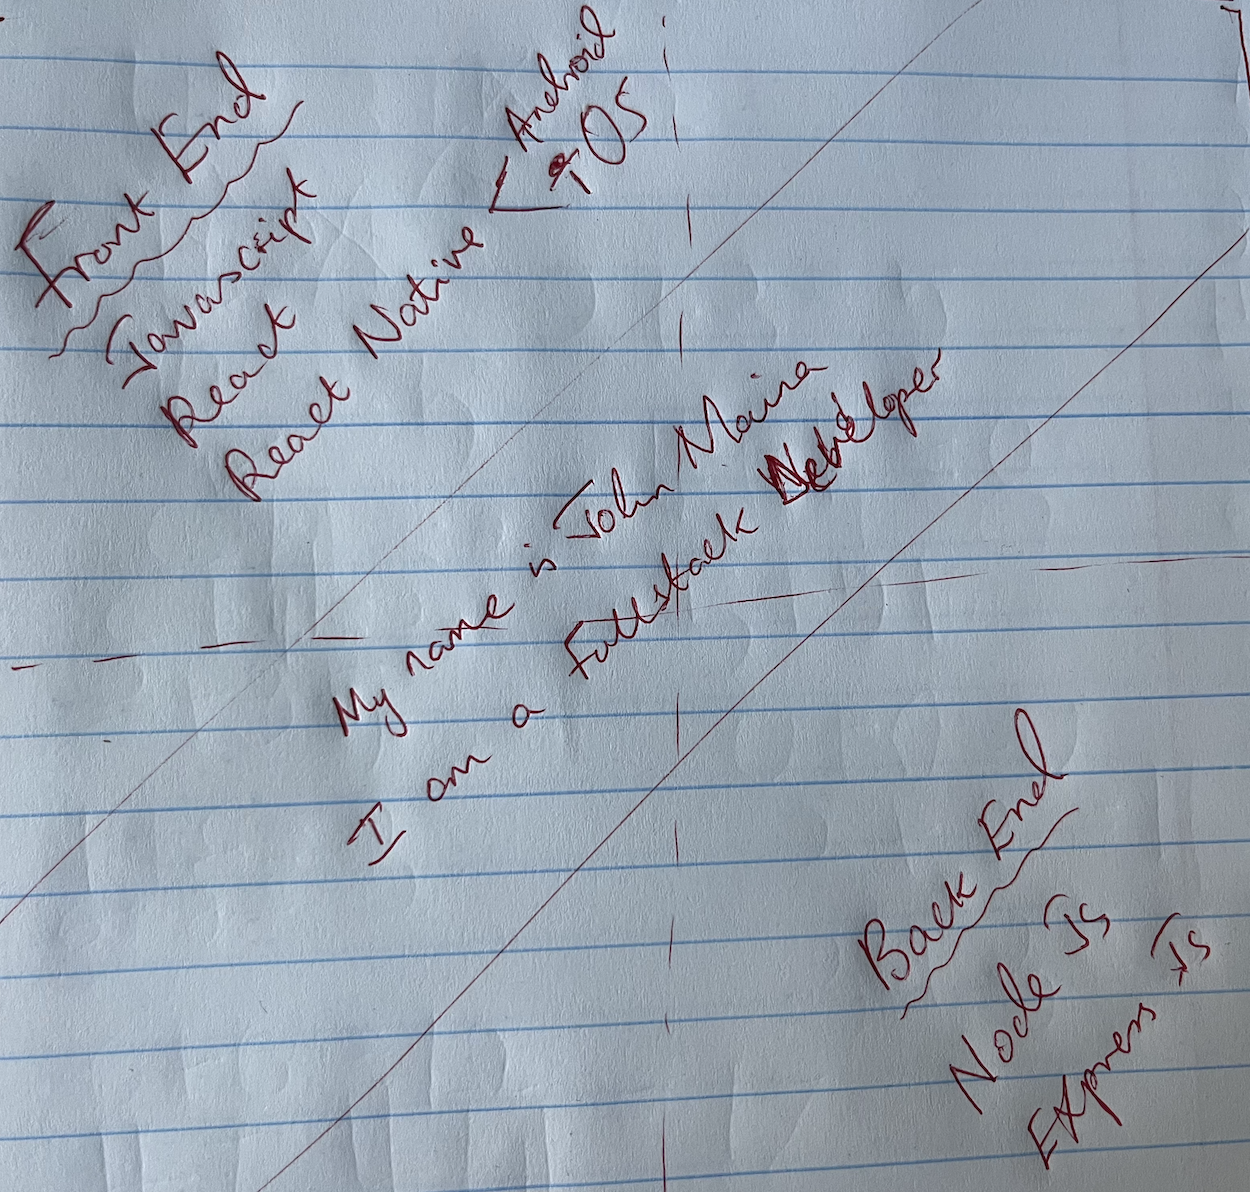 Front End
Javascript
React
React Native
Android
IOS
My name is John Maina
I am a Fullstack Developer
Back End
Node JS
Express JS